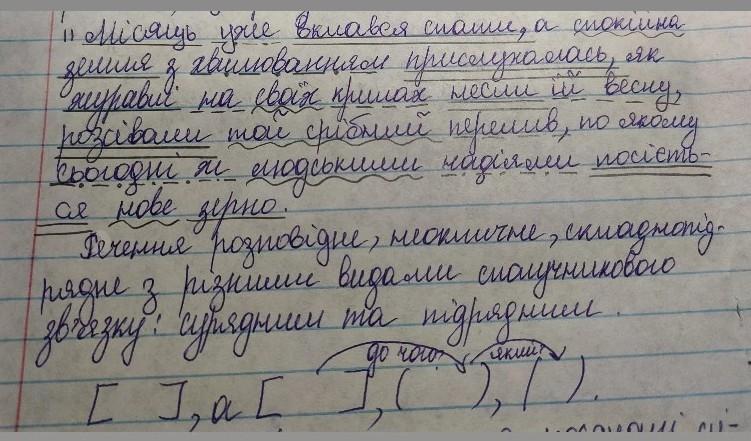 " Місяць уже вклався спати, а спокійна
земля з хвилюванням прислухалась, як
журавлі на своїх крилах несли їй весну,
розсівали той срібний перелив, по якому
сьогодні ж людськими надіями посієть-
ся нове зерно.
Речення розповідне, неокличне, складнопід-
рядне з різними видами сполучникового
зв'язку: сурядним та підрядним.
до чого? який?
[ ], а [ ], ( ), ( ).